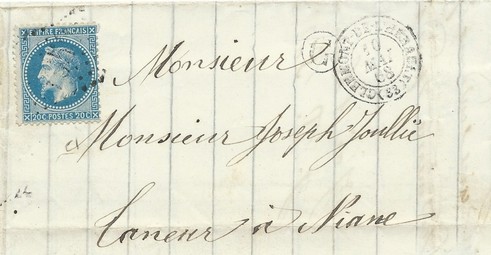 EMPIRE FRANÇAIS
20C POSTES 20C
CLERMONT-DE-L'HÉRAULT (33)
G
Monsieur
Monsieur Joseph Joullié
Taneur à Niane